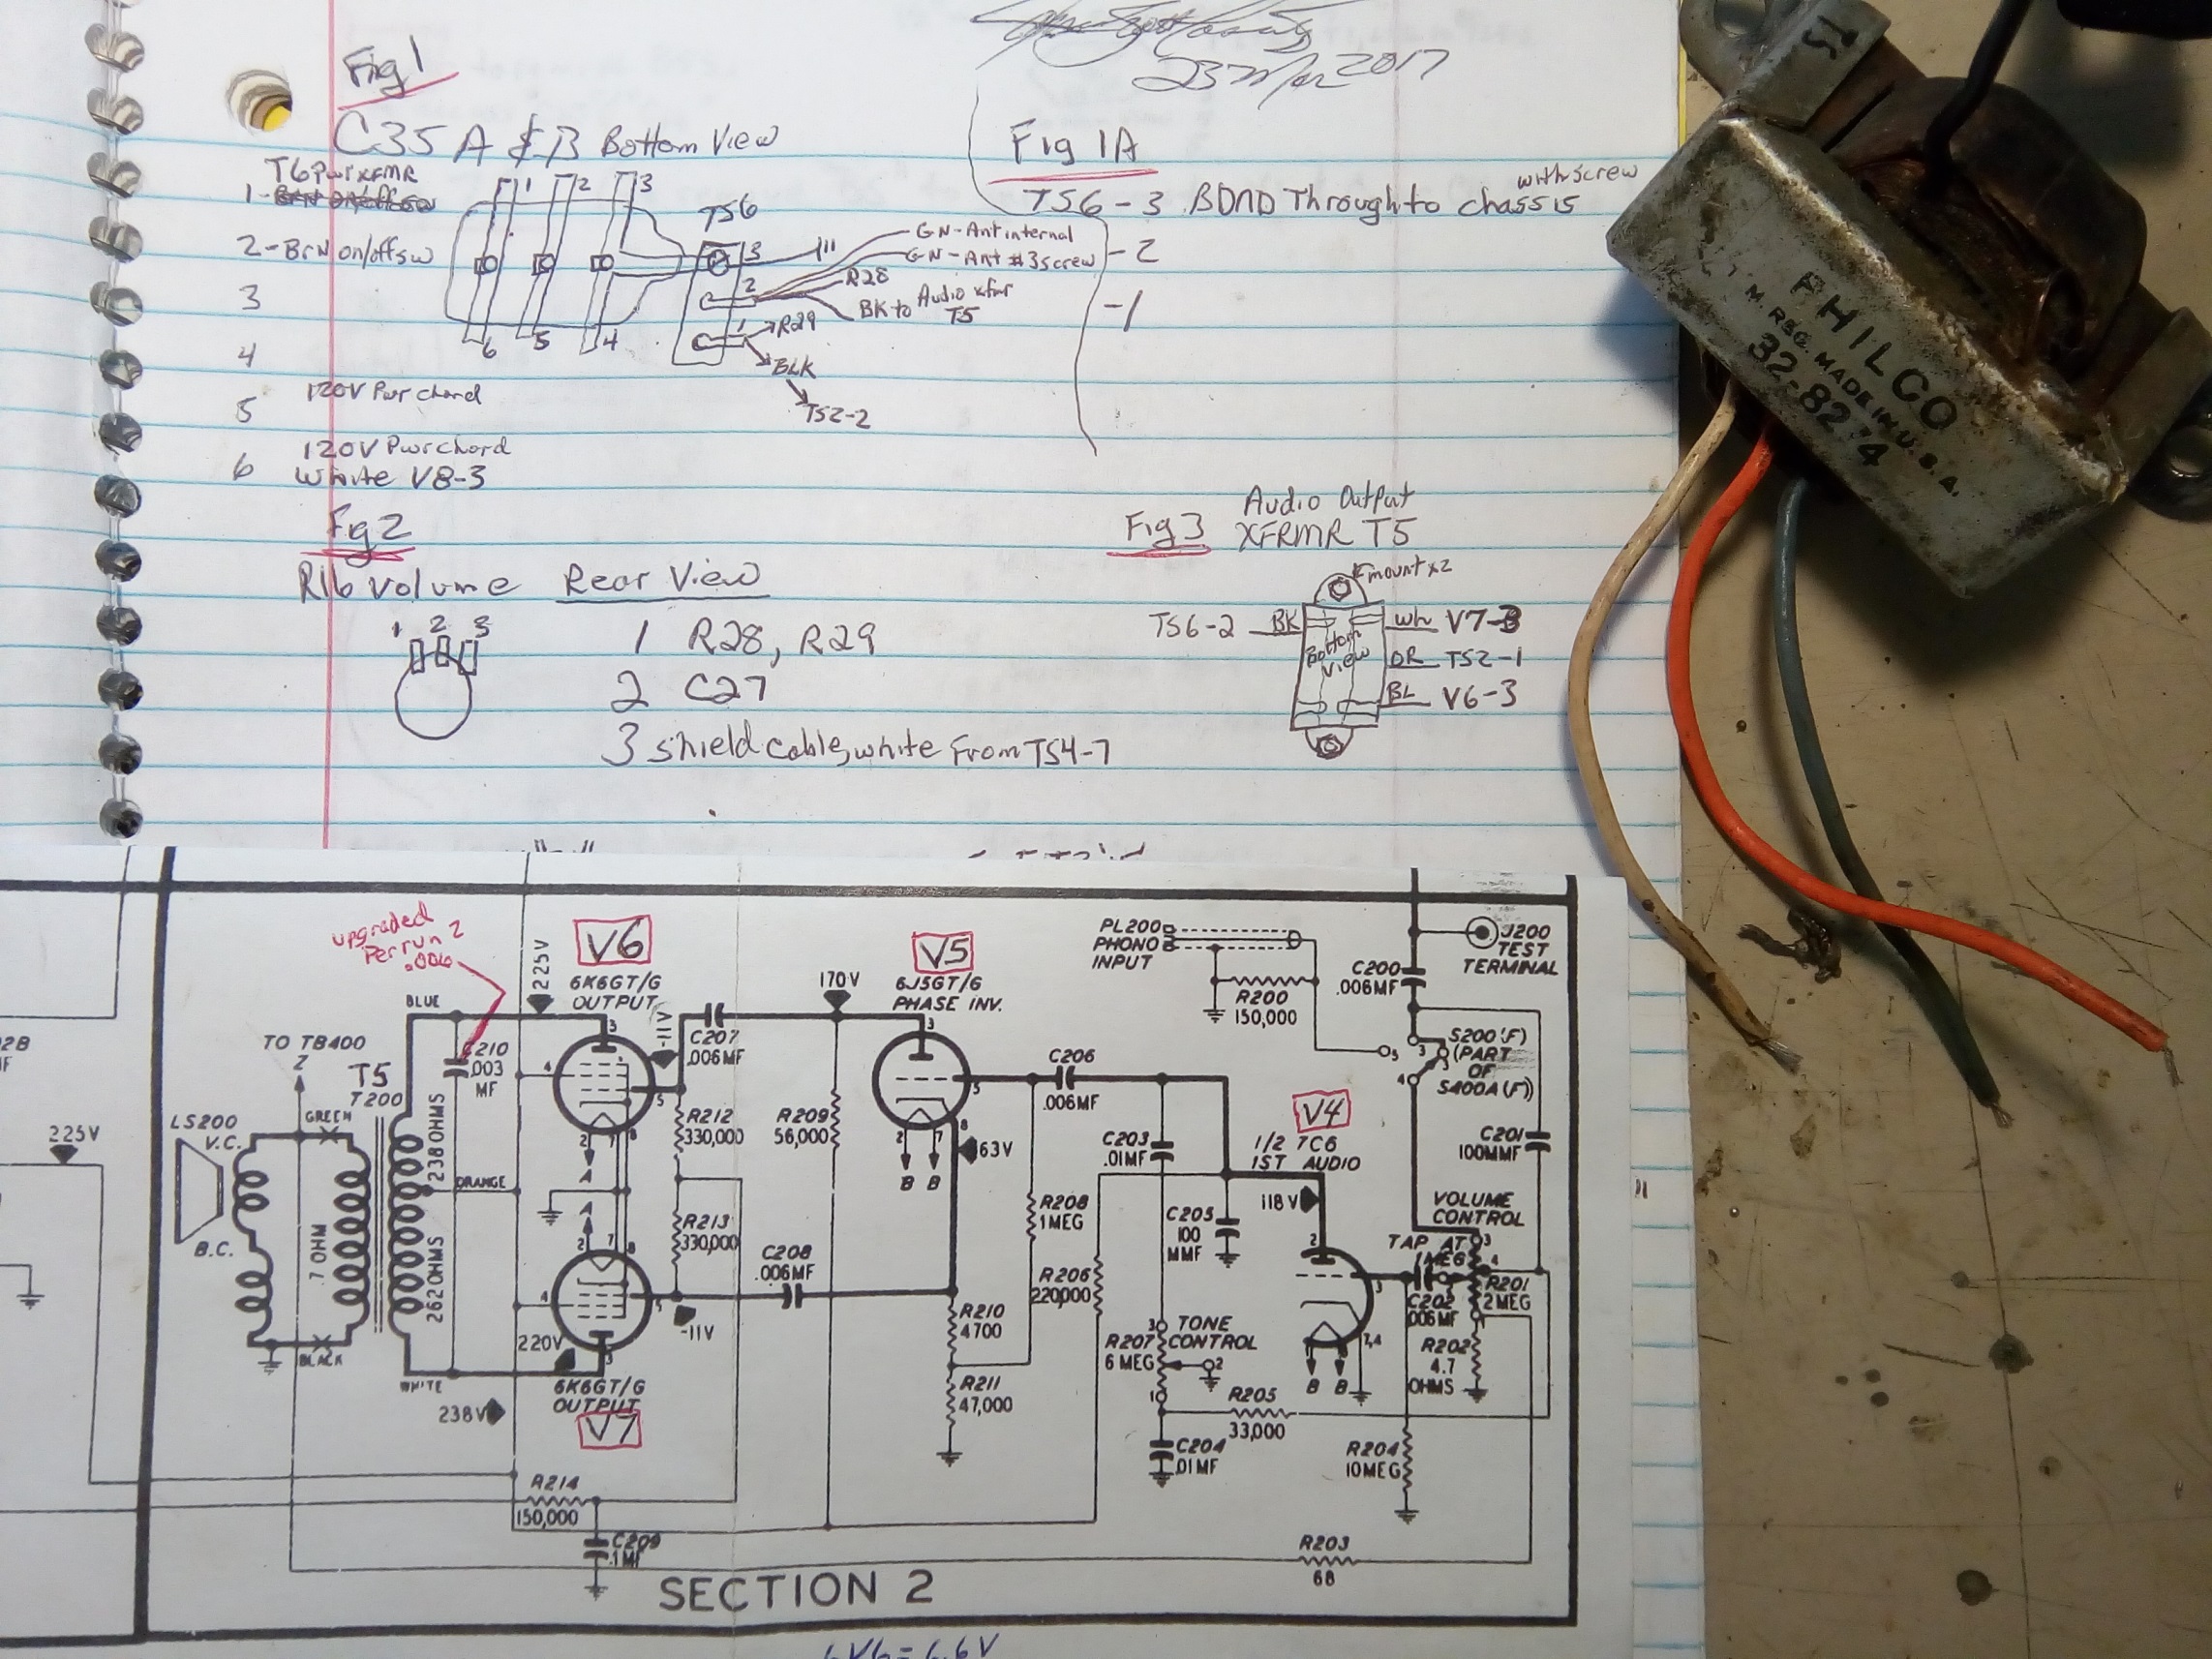 Fig 1
23 Mar 2017
C35 A & B Bottom View
Fig 1A
T6 pwr xFMR
1-
TS6-3 BOND Through to chassis with screw
1 2 3
TS6
GN-Ant internal
-2
2-Brn on/offsw
GN-Ant #3 screw
3
2
R28
BK to Audio xfmr T5
-1
1
R29
3
6 5 4
BLK
4
TS2-2
120V Pwr chord
5
120V Pwr chord
6 White V8-3
Fig 2
R16 Volume Rear View
1 2 3
1 R28, R29
2 C27
3 shield cable, white From TS4-7
Fig 3
Audio Output
XFRMR T5
mount x2
TS6-2 BK
Wh V7-3
Bottom View
OR TS2-1
BL V6-3
PHILCO
T.M. REG. MADE IN U.S.A.
upgraded
Per run 2
.006
225V
V6
6K6GT/G
OUTPUT
170V
V5
6J5GT/G
PHASE INV.
PL200
PHONO
INPUT
J200
TEST
TERMINAL
C200
.006MF
R200
150,000
S200 (F)
(PART
OF
S400A (F))
BLUE
TO TB400
Z
C210
.003
MF
T5
T200
GREEN
LS200
V.C.
B.C.
225V
.7 OHM
238 OHMS
ORANGE
262 OHMS
BLACK
WHITE
-11V
C207
.006MF
R212
330,000
R209
56,000
C206
.006MF
63V
C203
.01MF
V4
1/2 7C6
1ST AUDIO
C201
100MMF
118V
VOLUME
CONTROL
TAP AT
1MEG
R201
2MEG
R213
330,000
C208
.006MF
R208
1MEG
C205
100
MMF
R206
220,000
C202
.006MF
R202
4.7
OHMS
220V
-11V
6K6GT/G
OUTPUT
V7
238V
R210
4700
R211
47,000
TONE
CONTROL
R207
6MEG
R205
33,000
C204
.01MF
R204
10MEG
R214
150,000
C209
.1MF
R203
68
SECTION 2
6V6= 6.6V